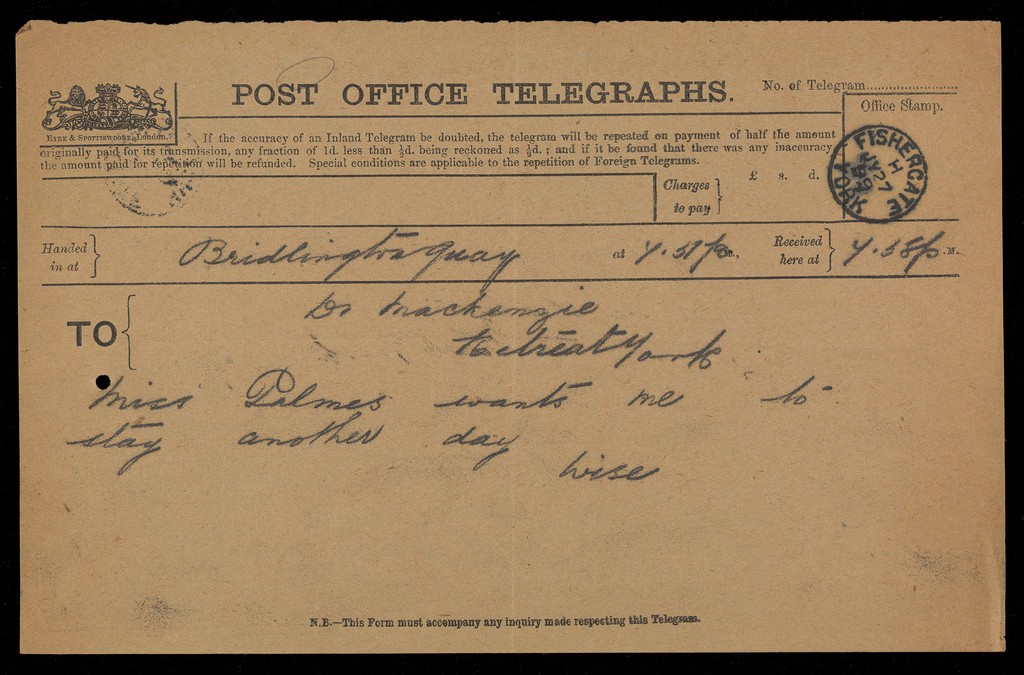 POST OFFICE TELEGRAPHS.
No. of Telegram
Office Stamp.
EYRE & SPOTTISWOODE, London.
If the accuracy of an Inland Telegram be doubted, the telegram will be repeated on payment of half the amount
originally paid for its transmission, any fraction of 1d. less than ½d. being reckoned as ½d.; and if it be found that there was any inaccuracy,
the amount paid for repetition will be refunded. Special conditions are applicable to the repetition of Foreign Telegrams.
FISHERGATE
H
27
YORK
Charges to pay
£ s. d.
Handed in at
Bridlington Quay
at
Received here at
M.
TO
Dr Mackenzie
Retreat York
Miss Palmes wants me to
stay another day
Wise
N.B.—This Form must accompany any inquiry made respecting this Telegram.